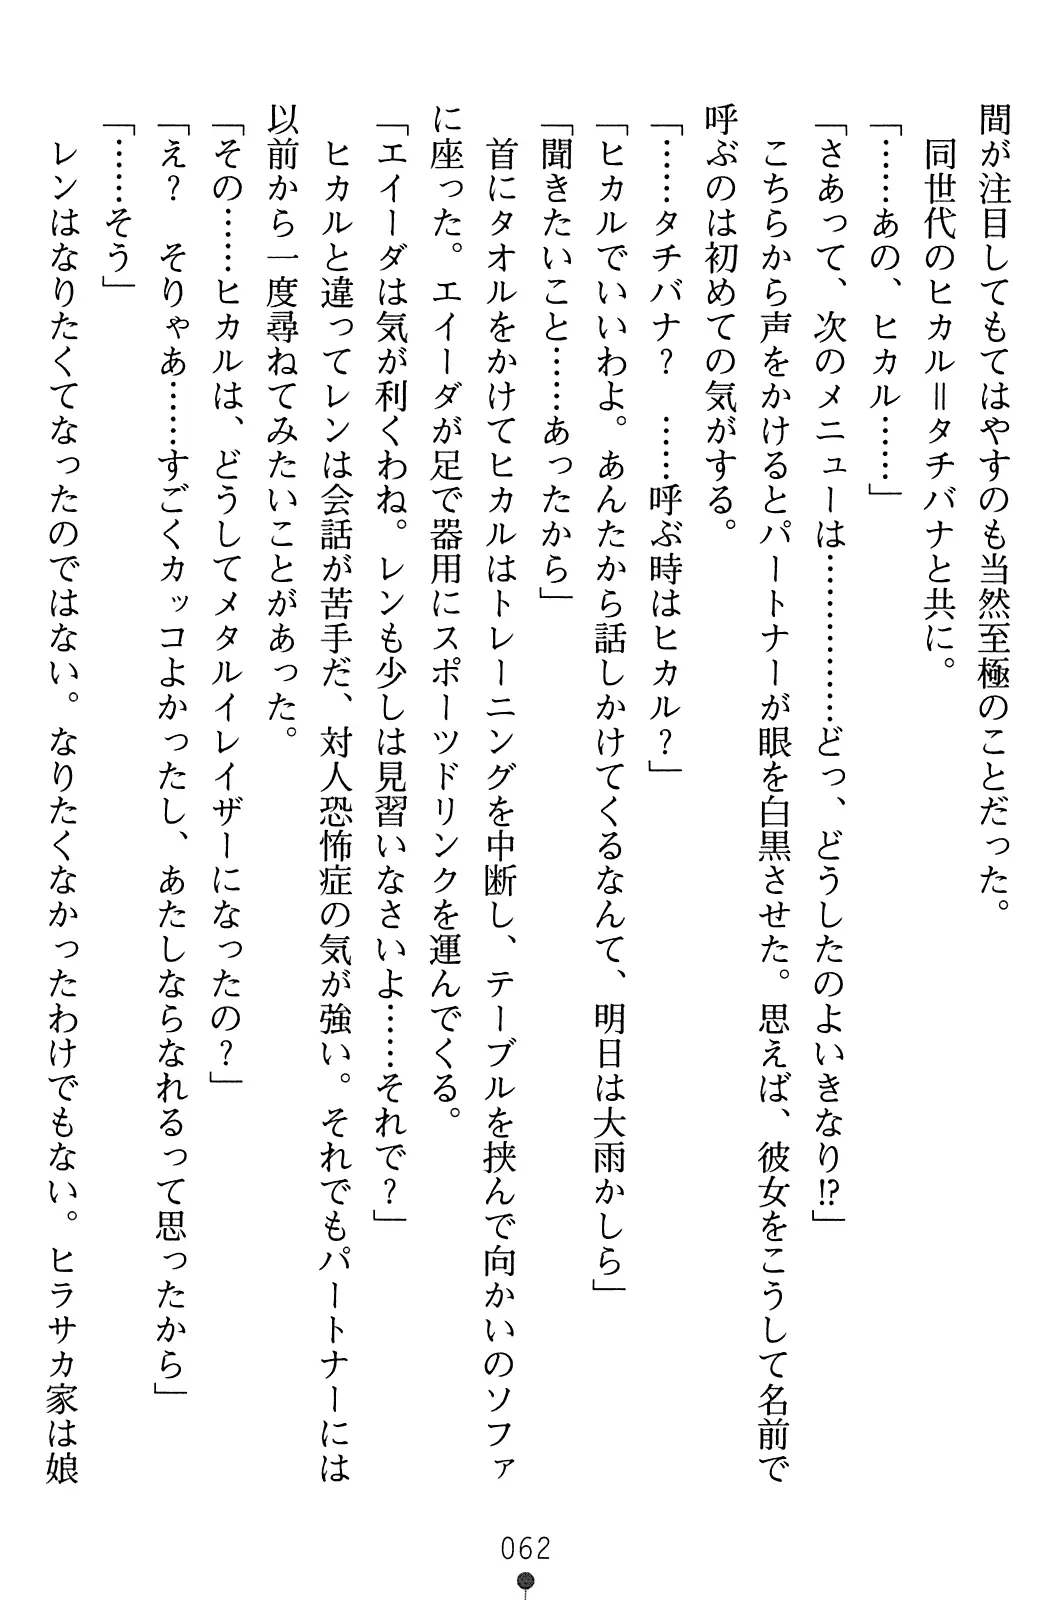 間が注目してもてはやすのも当然至極のことだった。
　同世代のヒカル＝タチバナと共に。
「……あの、ヒカル……」
「さあって、次のメニューは……………どっ、どうしたのよいきなり!?」
　こちらから声をかけるとパートナーが眼を白黒させた。思えば、彼女をこうして名前で
呼ぶのは初めての気がする。
「……タチバナ？　……呼ぶ時はヒカル？」
「ヒカルでいいわよ。あんたから話しかけてくるなんて、明日は大雨かしら」
「聞きたいこと……あったから」
　首にタオルをかけてヒカルはトレーニングを中断し、テーブルを挟んで向かいのソファ
に座った。エイーダが足で器用にスポーツドリンクを運んでくる。
「エイーダは気が利くわね。レンも少しは見習いなさいよ……それで？」
　ヒカルと違ってレンは会話が苦手だ、対人恐怖症の気が強い。それでもパートナーには
以前から一度尋ねてみたいことがあった。
「その……ヒカルは、どうしてメタルイレイザーになったの？」
「え？　そりゃあ……すごくカッコよかったし、あたしならなれるって思ったから」
「……そう」
　レンはなりたくてなったのではない。なりたくなかったわけでもない。ヒラサカ家は娘
062